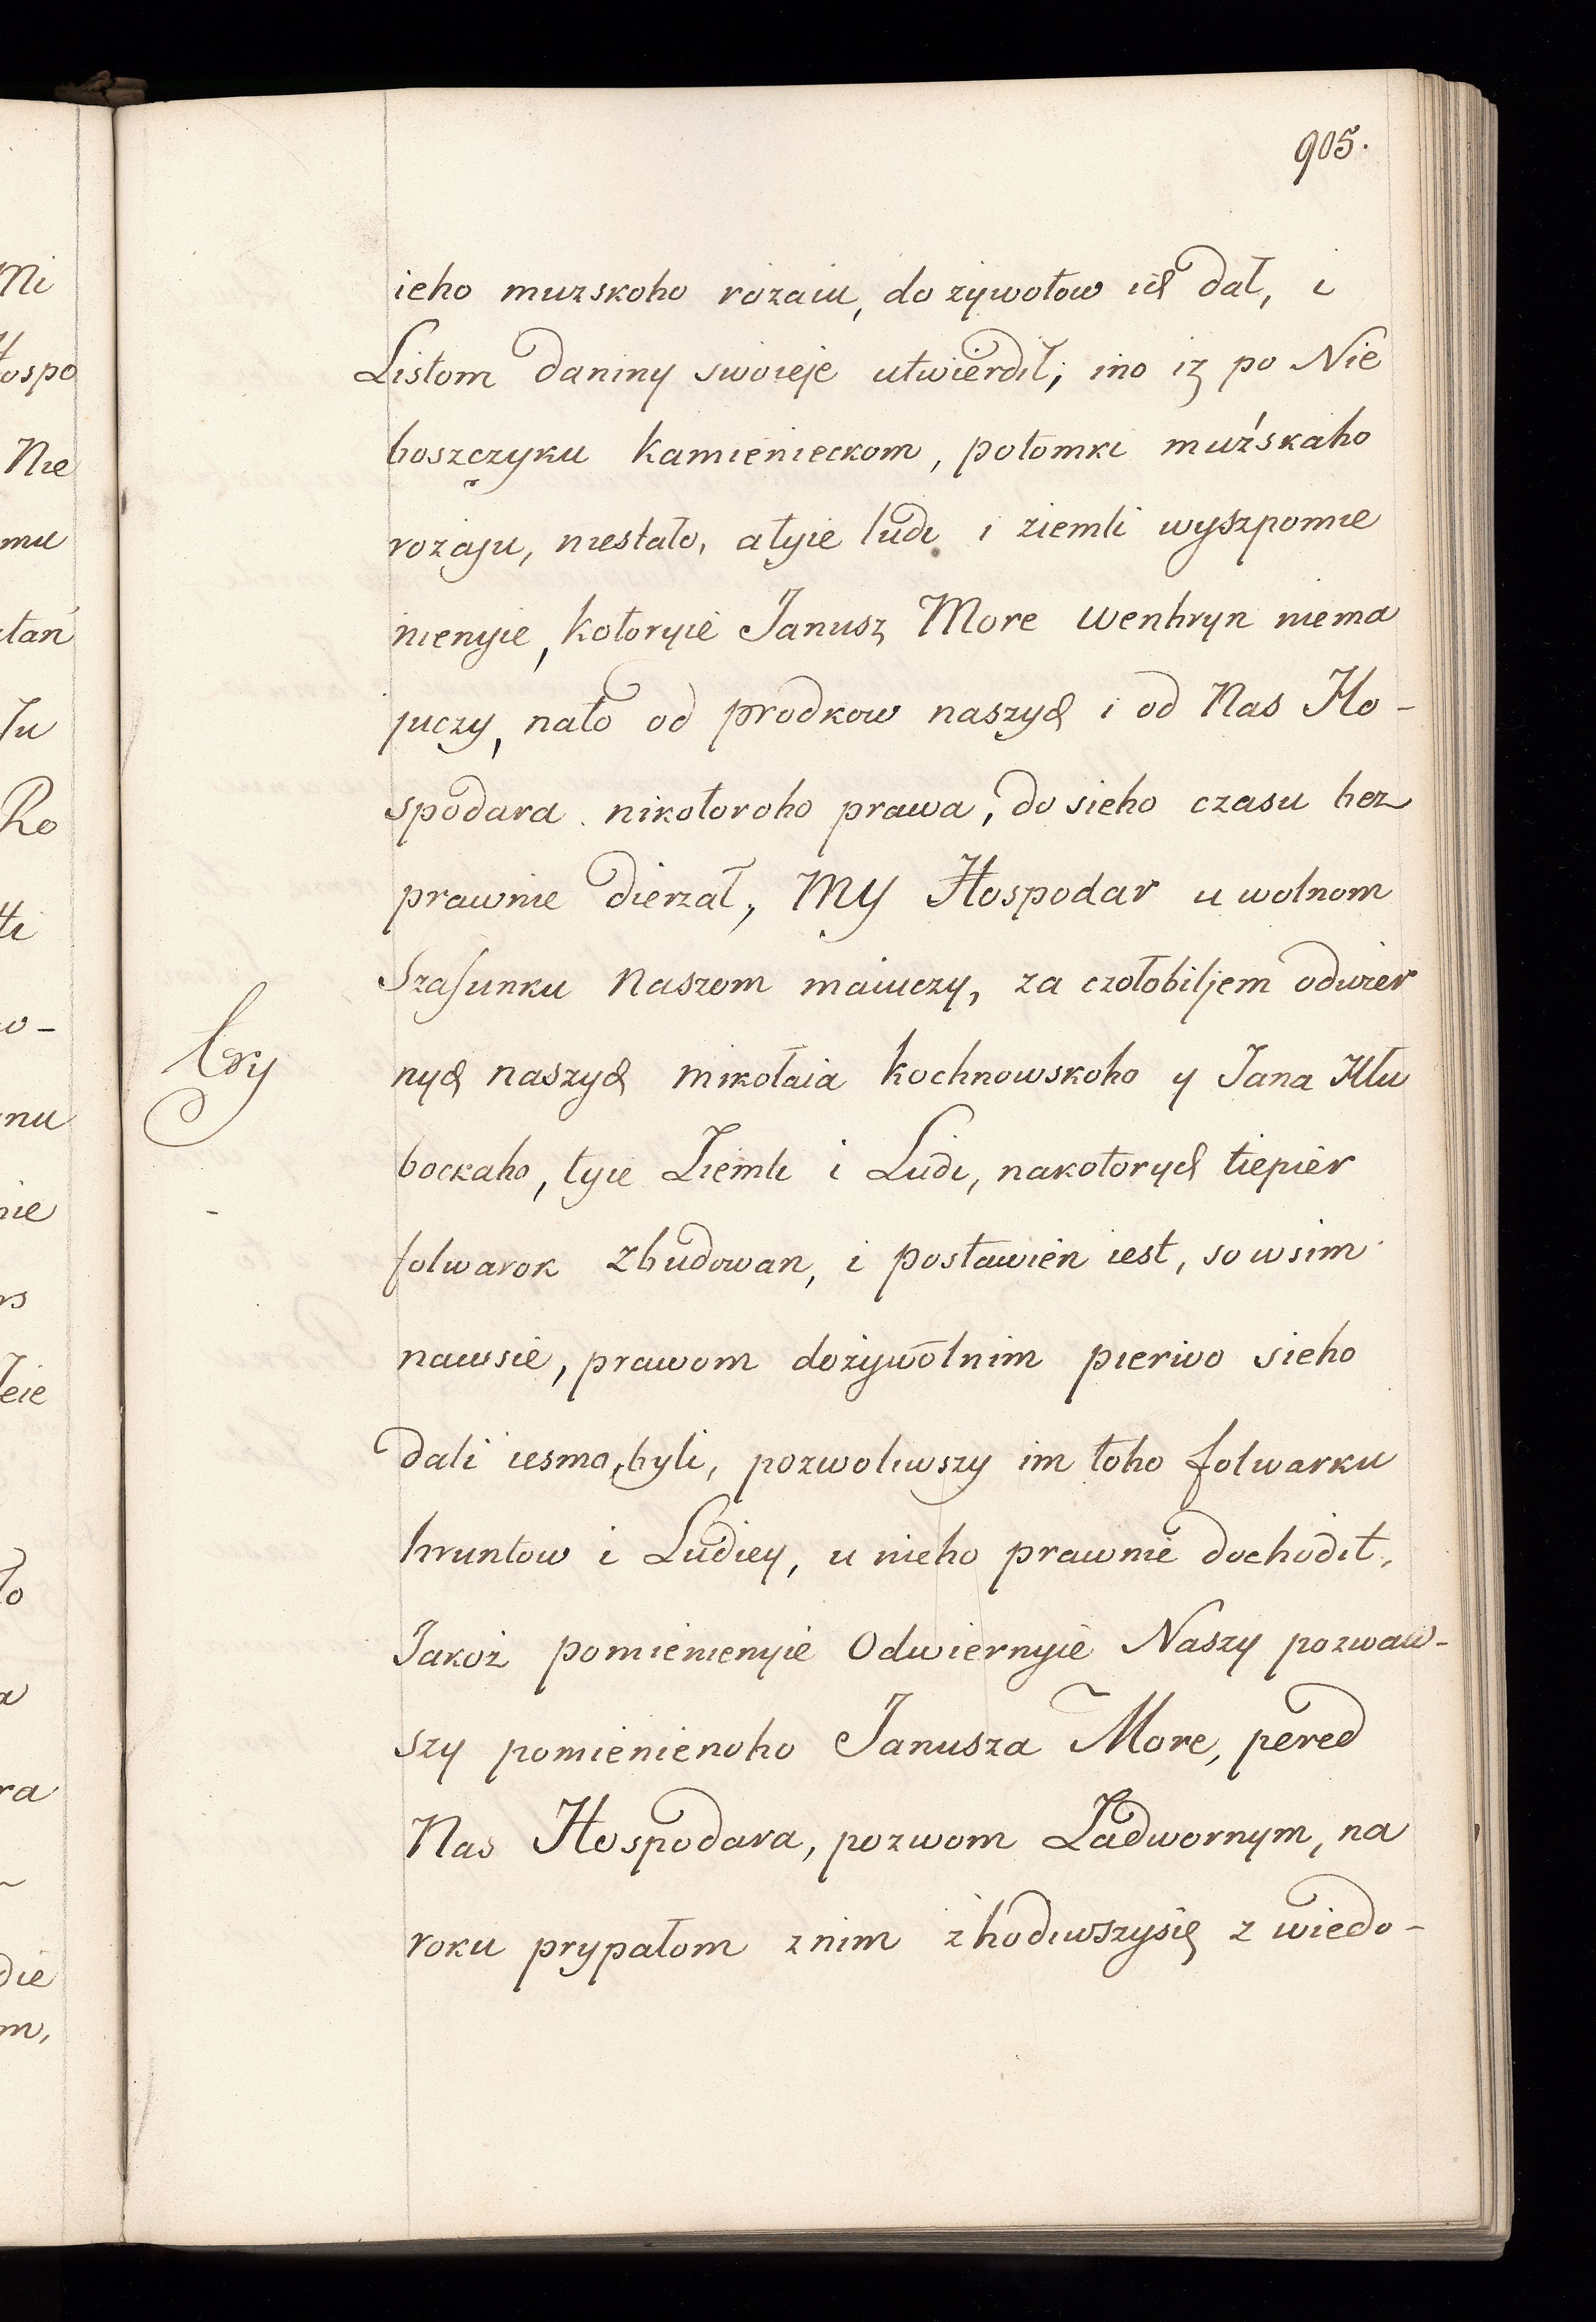 905.
ieho muzskoho rozaiu, do zywotow ich dał, i
Listom daniny swoieje utwierdił, ino iz po Nie
boszczyku Kamienieckom, potomki muźskaho
rozaju, niestało, atyie ludi i ziemli wyszpomie
nienyie, kotoryie Janusz More Wenhryn niema
juczy, nato od prodkow naszych i od Nas Ho-
spodara nikotoroho prawa, do sieho czasu bez
prawnie dierzał, MY Hospodar u wolnom
Szafunku Naszom maiuczy, za czołobitjem odwier
nych naszych mikołaia Kochnowskoho y Jana Hłu
bockaho, tyie Ziemli i Ludi, nakotorych tiepier
folwarok zbudowan, i postawien iest, so wsim
nawsie, prawom dożywotnim pierwo sieho
dali iesmo, byli, pozwoliwszy im toho folwarku
hruntow i Ludiey, u nieho prawnie dochodit,
Jakoż pomienienyie Odwiernyie Naszy pozwaw-
szy pomienienoho Janusza More, pered
Nas Hospodara, pozwom Zadwornym, na
roku prypałom z nim zhodiwszysię z wiedo-
try